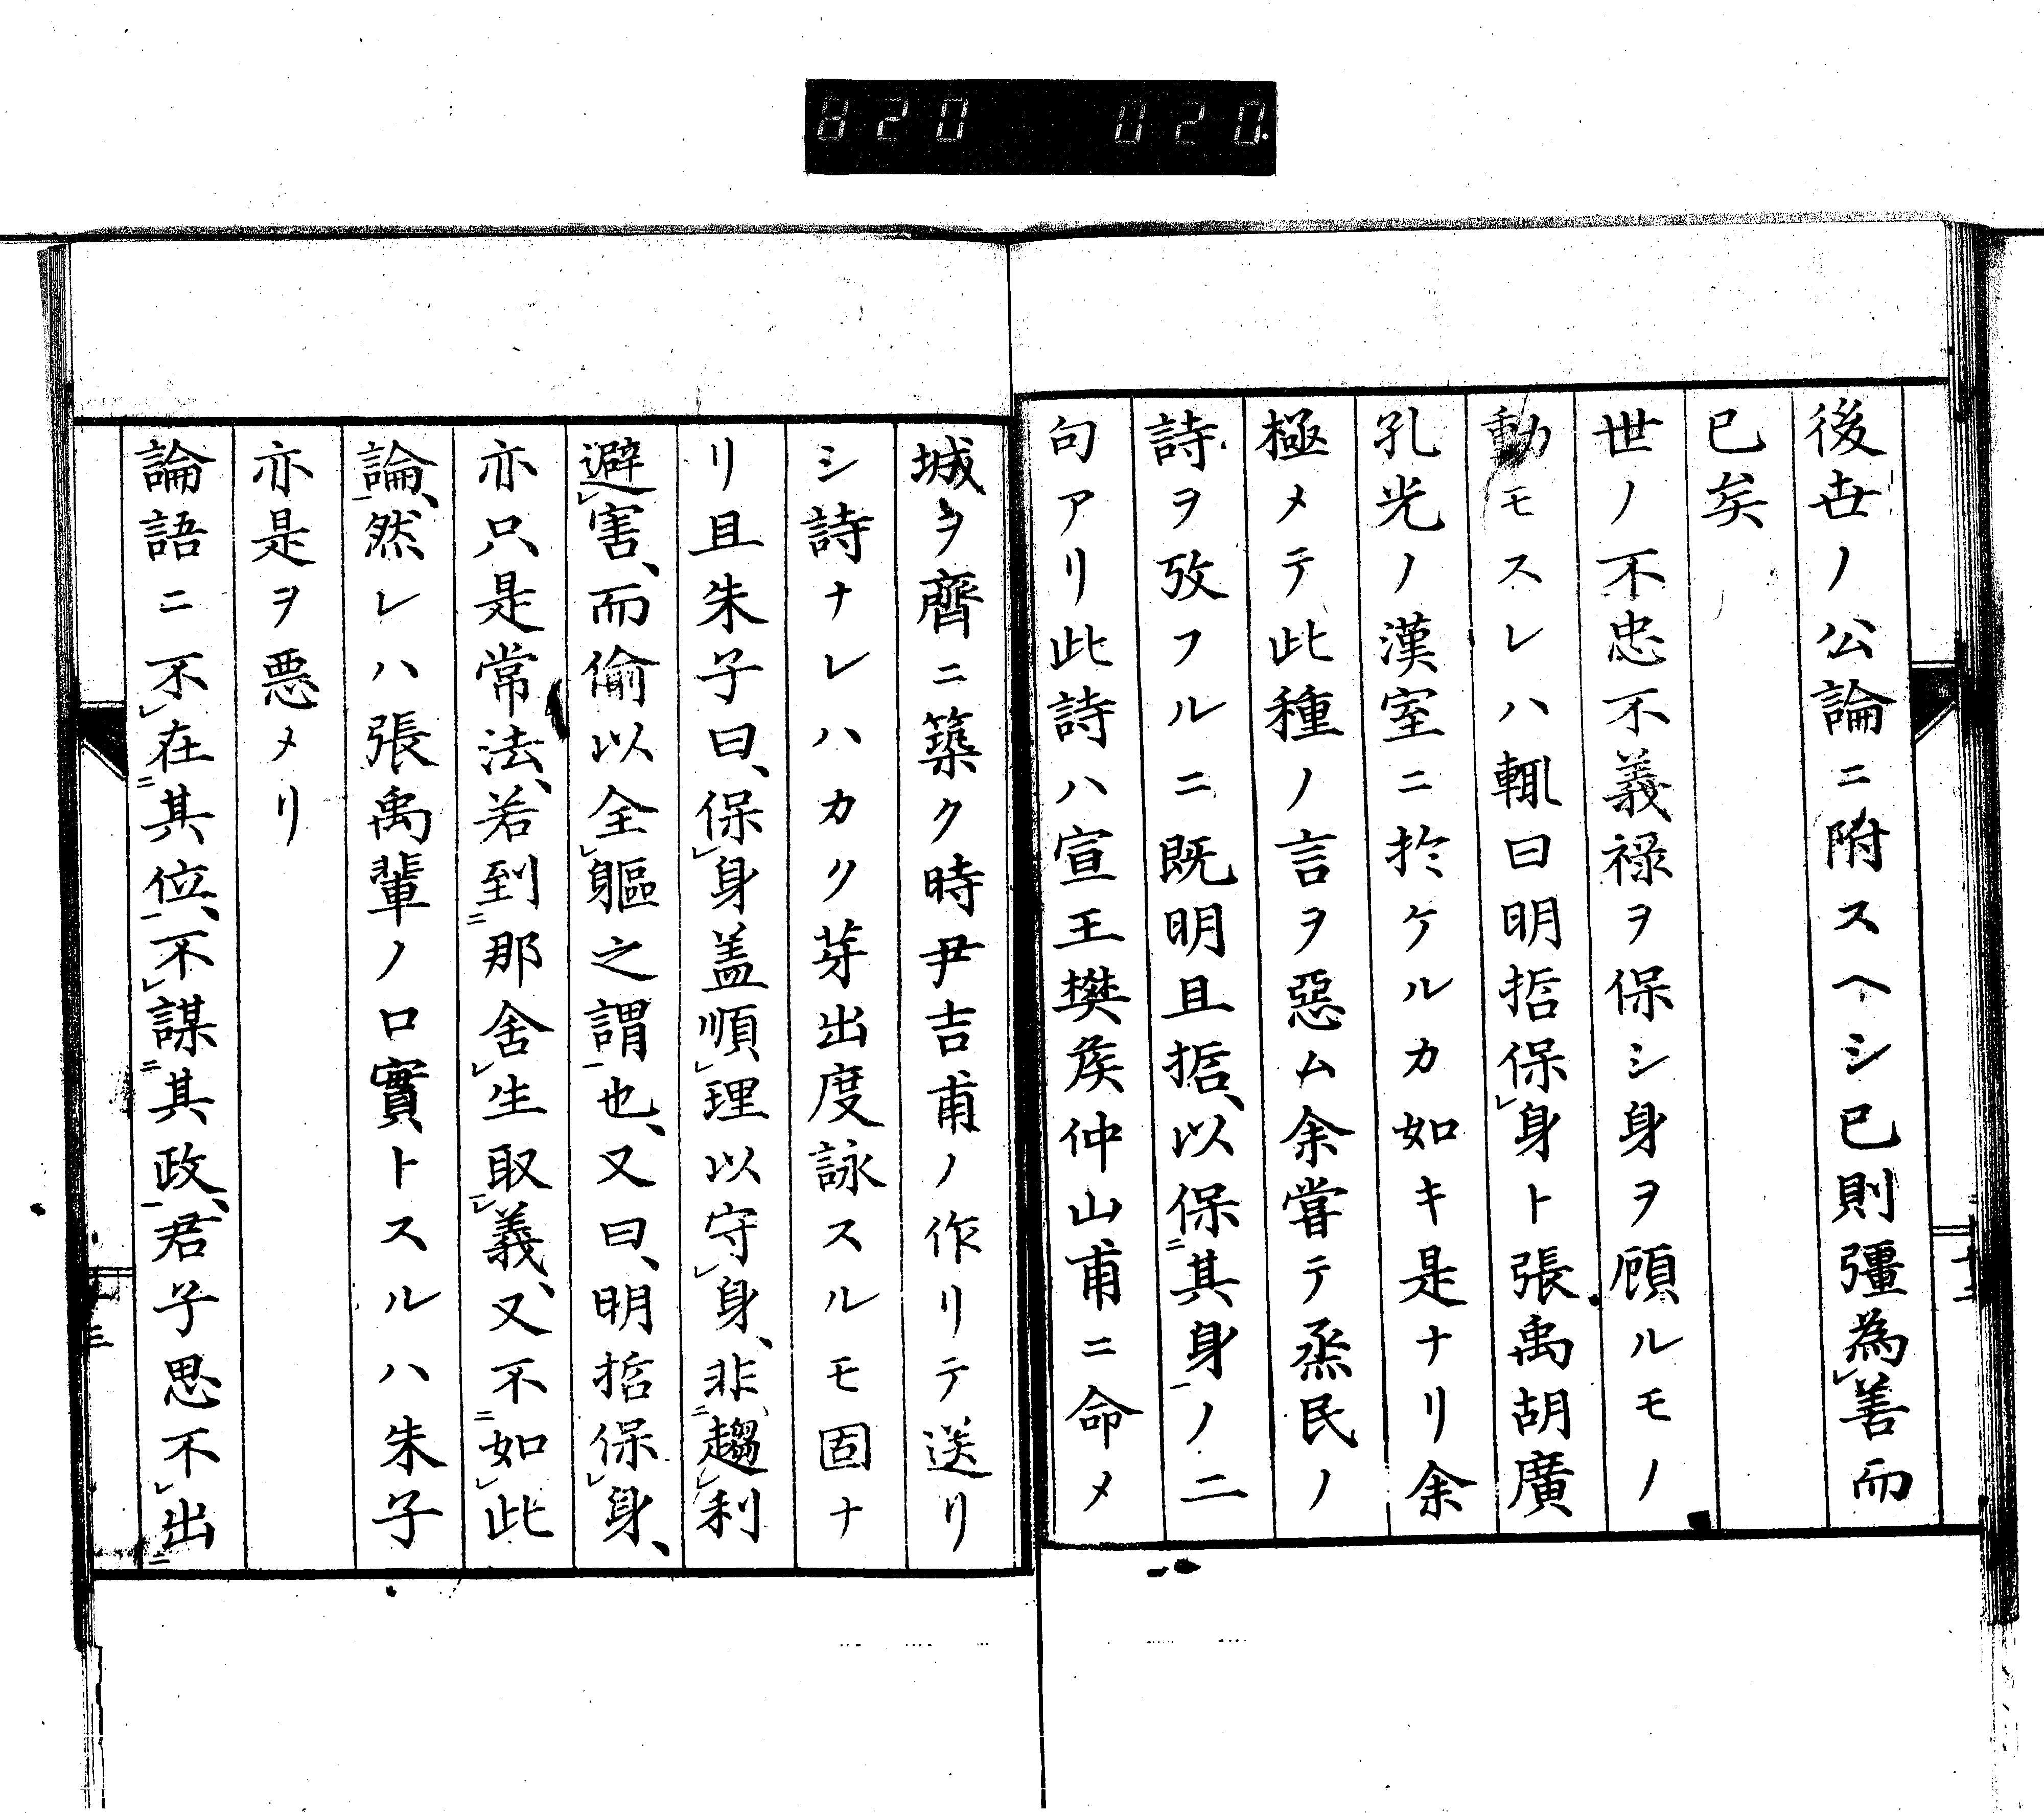 820 020
後世ノ公論ニ附スヘシ已則彊為㆑善而
已矣
世ノ不忠不義禄ヲ保シ身ヲ顧ルモノ
動モスレハ輒曰明哲保㆑身ト張禹胡廣
孔光ノ漢室ニ於ケルカ如キ是ナリ余
極メテ此種ノ言ヲ惡ム余嘗テ烝民ノ
詩ヲ攷フルニ既明且哲、以保㆓其身㆒ノ二
句アリ此詩ハ宣王樊矦仲山甫ニ命メ
城ヲ齊ニ築ク時尹吉甫ノ作リテ送リ
シ詩ナレハカク芽出度詠スルモ固ナ
リ且朱子曰、保㆑身盖順㆑理以守㆑身、非㆘趨㆑利
避㆑害、而偷以全㆑軀之謂㆖也、又曰、明哲保㆑身、
亦只是常法、若到㆓那舍㆑生取㆑義、又不㆓如㆑此
論㆒、然レハ張禹輩ノ口實トスルハ朱子
亦是ヲ悪メリ
論語ニ不㆑在㆓其位㆒、不㆑謀㆓其政㆒、君子思不㆑出㆓